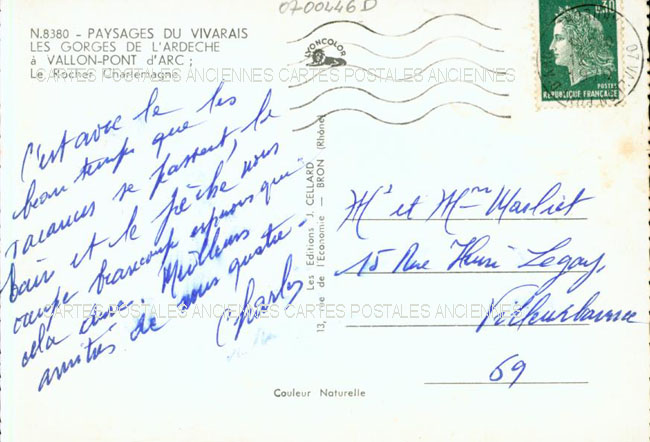 0700446D
N.8380 - PAYSAGES DU VIVARAIS
LES GORGES DE L'ARDECHE
à VALLON-PONT d'ARC ;
Le Rocher Charlemagne
LYONCOLOR
0,30
POSTES
REPUBLIQUE FRANÇAISE
CARTES POSTALES ANCIENNES CARTES POSTALES ANCIENNES
C'est avec le
beau temps que les
vacances se passent, le
bain et le pêche nous
occupe beaucoup espérons que
cela dure. Meilleurs
amitiés de nous quatre
Charly
13, Rue de l'Economie - BRON (Rhône)
Les Editions J. CELLARD
Mr et Mme Masliet
15 Rue Henri Legay,
Villeurbanne
69
CARTES POSTALES ANCIENNES CARTES POSTALES ANCIENNES
Couleur Naturelle